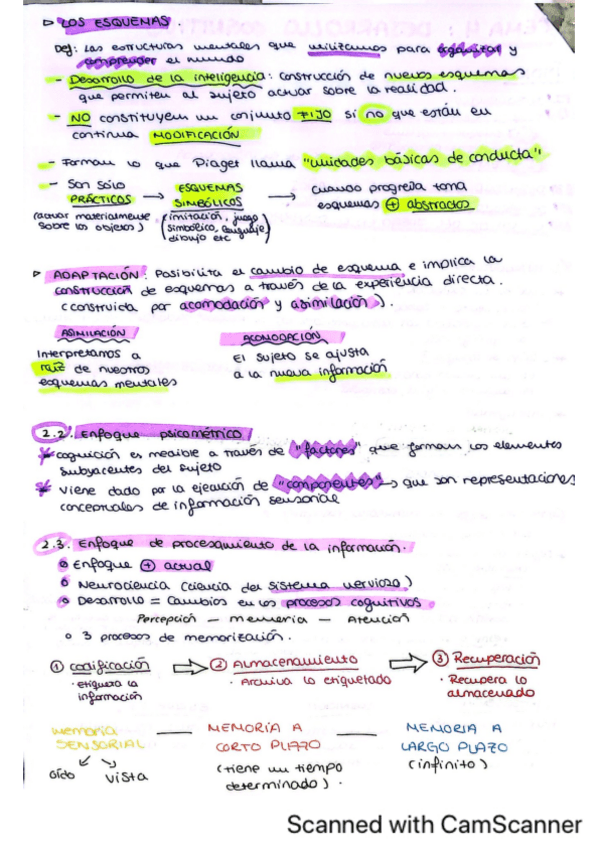 ▷ LOS ESQUEMAS.
Def: Las estructuras mentales que utilizamos para organizar y
comprender el mundo
- Desarrollo de la inteligencia: construcción de nuevos esquemas
que permiten al sujeto actuar sobre la realidad.
- NO constituyen un conjunto FIJO si no que están en
continua MODIFICACIÓN
- Forman lo que Piaget llama "unidades básicas de conducta"
- Son sólo PRÁCTICOS → ESQUEMAS SIMBÓLICOS → cuando progresa toma esquemas ⊕ abstractos
(actuar materialmente sobre los objetos) (imitación, juego simbólico, lenguaje, dibujo etc)
▷ ADAPTACIÓN: Posibilita el cambio de esquema e implica la
construcción de esquemas a través de la experiencia directa.
(construida por acomodación y asimilación).
ASIMILACIÓN
Interpretamos a
raíz de nuestros
esquemas mentales
ACOMODACIÓN
El sujeto se ajusta
a la nueva información
2.2. Enfoque psicométrico
* cognición es medible a través de "factores" que forman los elementos
subyacentes del sujeto
* Viene dado por la ejecución de "componentes" → que son representaciones
conceptuales de información sensorial
2.3. Enfoque de procesamiento de la información.
o Enfoque ⊕ actual
o Neurociencia (ciencia del sistema nervioso)
o Desarrollo = Cambios en los procesos cognitivos
Percepción — memoria — Atención
o 3 procesos de memorización.
① codificación ⇨ ② Almacenamiento ⇨ ③ Recuperación
· Etiqueta la información
· Archiva lo etiquetado
· Recupera lo almacenado
memoria SENSORIAL — MEMORIA A CORTO PLAZO — MEMORIA A LARGO PLAZO
oído vista
(tiene un tiempo determinado).
(infinito)
Scanned with CamScanner